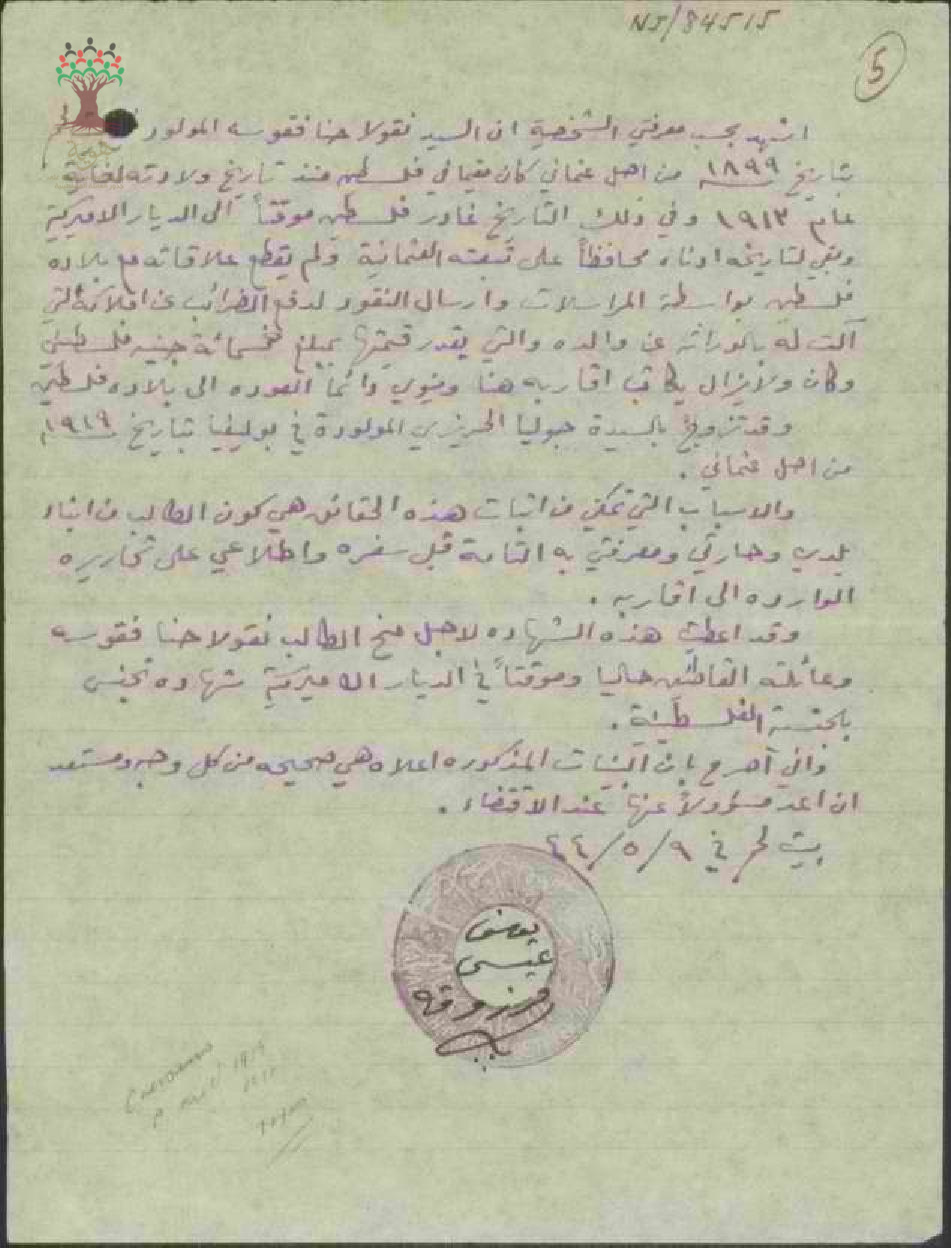 N5/84515
5
اشهد بحسب معرفتي الشخصية ان السيد نقولا حنا فقوسه المولود في
بتاريخ ١٨٩٩ من اصل عثماني كان مقيما في فلسطين منذ تاريخ ولادته لغاية
عام ١٩١٣ وفي ذلك التاريخ غادر فلسطين موقتاً الى الديار الاميركية
وبقي لتاريخه ادناه محافظاً على تبعته العثمانية ولم يقطع علاقاته مع بلاده
فلسطين بواسطة المراسلات وارسال النقود لدفع الضرائب عن املاكه التي
آلت له بالوراثه عن والده والتي يقدر قيمتها بمبلغ خمسمائة جنيه فلسطيني
وكان ولا يزال يكاتب اقاربه هنا وينوي دائماً العوده الى بلاده فلسطين
وقد تزوج بالسيدة جوليا الحزيزي المولودة في بوليفيا بتاريخ ١٩١٩
من اصل عثماني .
والاسباب التي تمكني من اثبات هذه الحقائق هي كون الطالب من ابناء
بلدي وحارتي ومعرفتي به التامة قبل سفره واطلاعي على تحاريره
الوارده الى اقاربه .
وقد اعطيت هذه الشهاده لاجل منح الطالب نقولا حنا فقوسه
وعائلته القاطنين حاليا وموقتاً في الديار الاميركية شهادة تجنس
بالجنسية الفلسطينية .
واني اصرح بان البينات المذكوره اعلاه هي صحيحه من كل وجه ومستعد
ان اعد مسؤولاً عنها عند الاقتضاء .
بيت لحم في ٩/٥/٤٤
يوسف
عيسى
مرزوقه